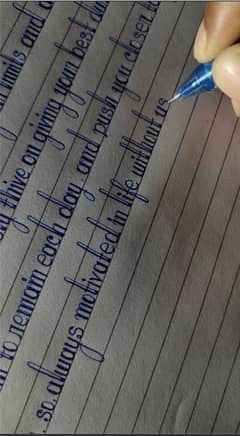 minds and
thive on giving your best
to remain each day and push you closer
so, always motivated in life without us